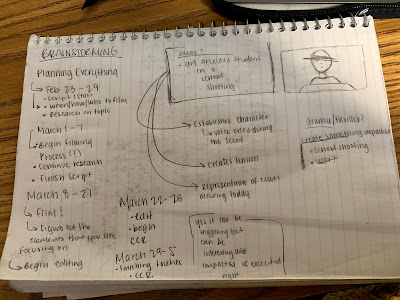 BRAINSTORMING
Planning Everything
↳ Feb 23 - 29
• script start
• when/how/who to film
• Research on topic
March 1 - 7
↳ Begin filming
Process (?)
• continue research
• Finish script
March 8 - 21
↳ Film!
↳ Figure out the
elements that you are
focusing on
↳ Begin editing
March 22-28
• edit
• begin
CCR
March 29-5
• finishing touches
• CCR
Ideas?
• an anxious student
in a
school
shooting
Establishes character
↳ voice over during
the scene
creates tension
representative of issues
occuring today
yes it can be
triggering but
can be
interesting and
impactful if executed
right
Drama/Thriller?
create something impactful
• school shooting